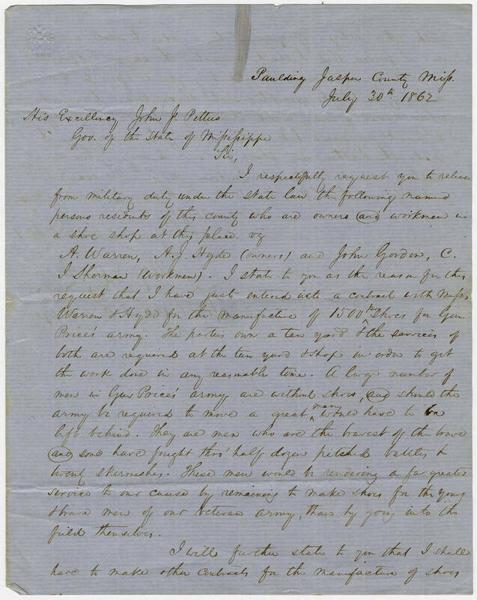 Paulding Jasper County Miss.
July 30th 1862
His Excellency John J Pettus
Gov. of the State of Mississippi
Sir,
I respectfully request you to release
from military duty under the State law the following named
persons residents of this county who are owners (and) workmen in
a shoe shop at this place. viz
A. Warren, A. J. Hyde (owners) and John Gordon, C.
I Sherman (workmen). I state to you as the reason for this
request that I have just entered into a contract with Messrs
Warren & Hyde for the manufacture of 1500 prs shoes for Gen
Price's army. The parties own a tan yard & the services of
both are required at the tan yard & shop in order to get
the work done in any reasonable time. A large number of
men in Gen Price's army are without shoes, and should the
army be required to move a great many would have to be
left behind. They are men who are the bravest of the brave
and some have fought thro' half dozen pitched battles &
twenty skirmishes. These men would be rendering a far greater
service to our cause by remaining to make shoes for the young
& brave men of our veteran army, than by going into the
field themselves.
I will further state to you that I shall
have to make other contracts for the manufacture of shoes